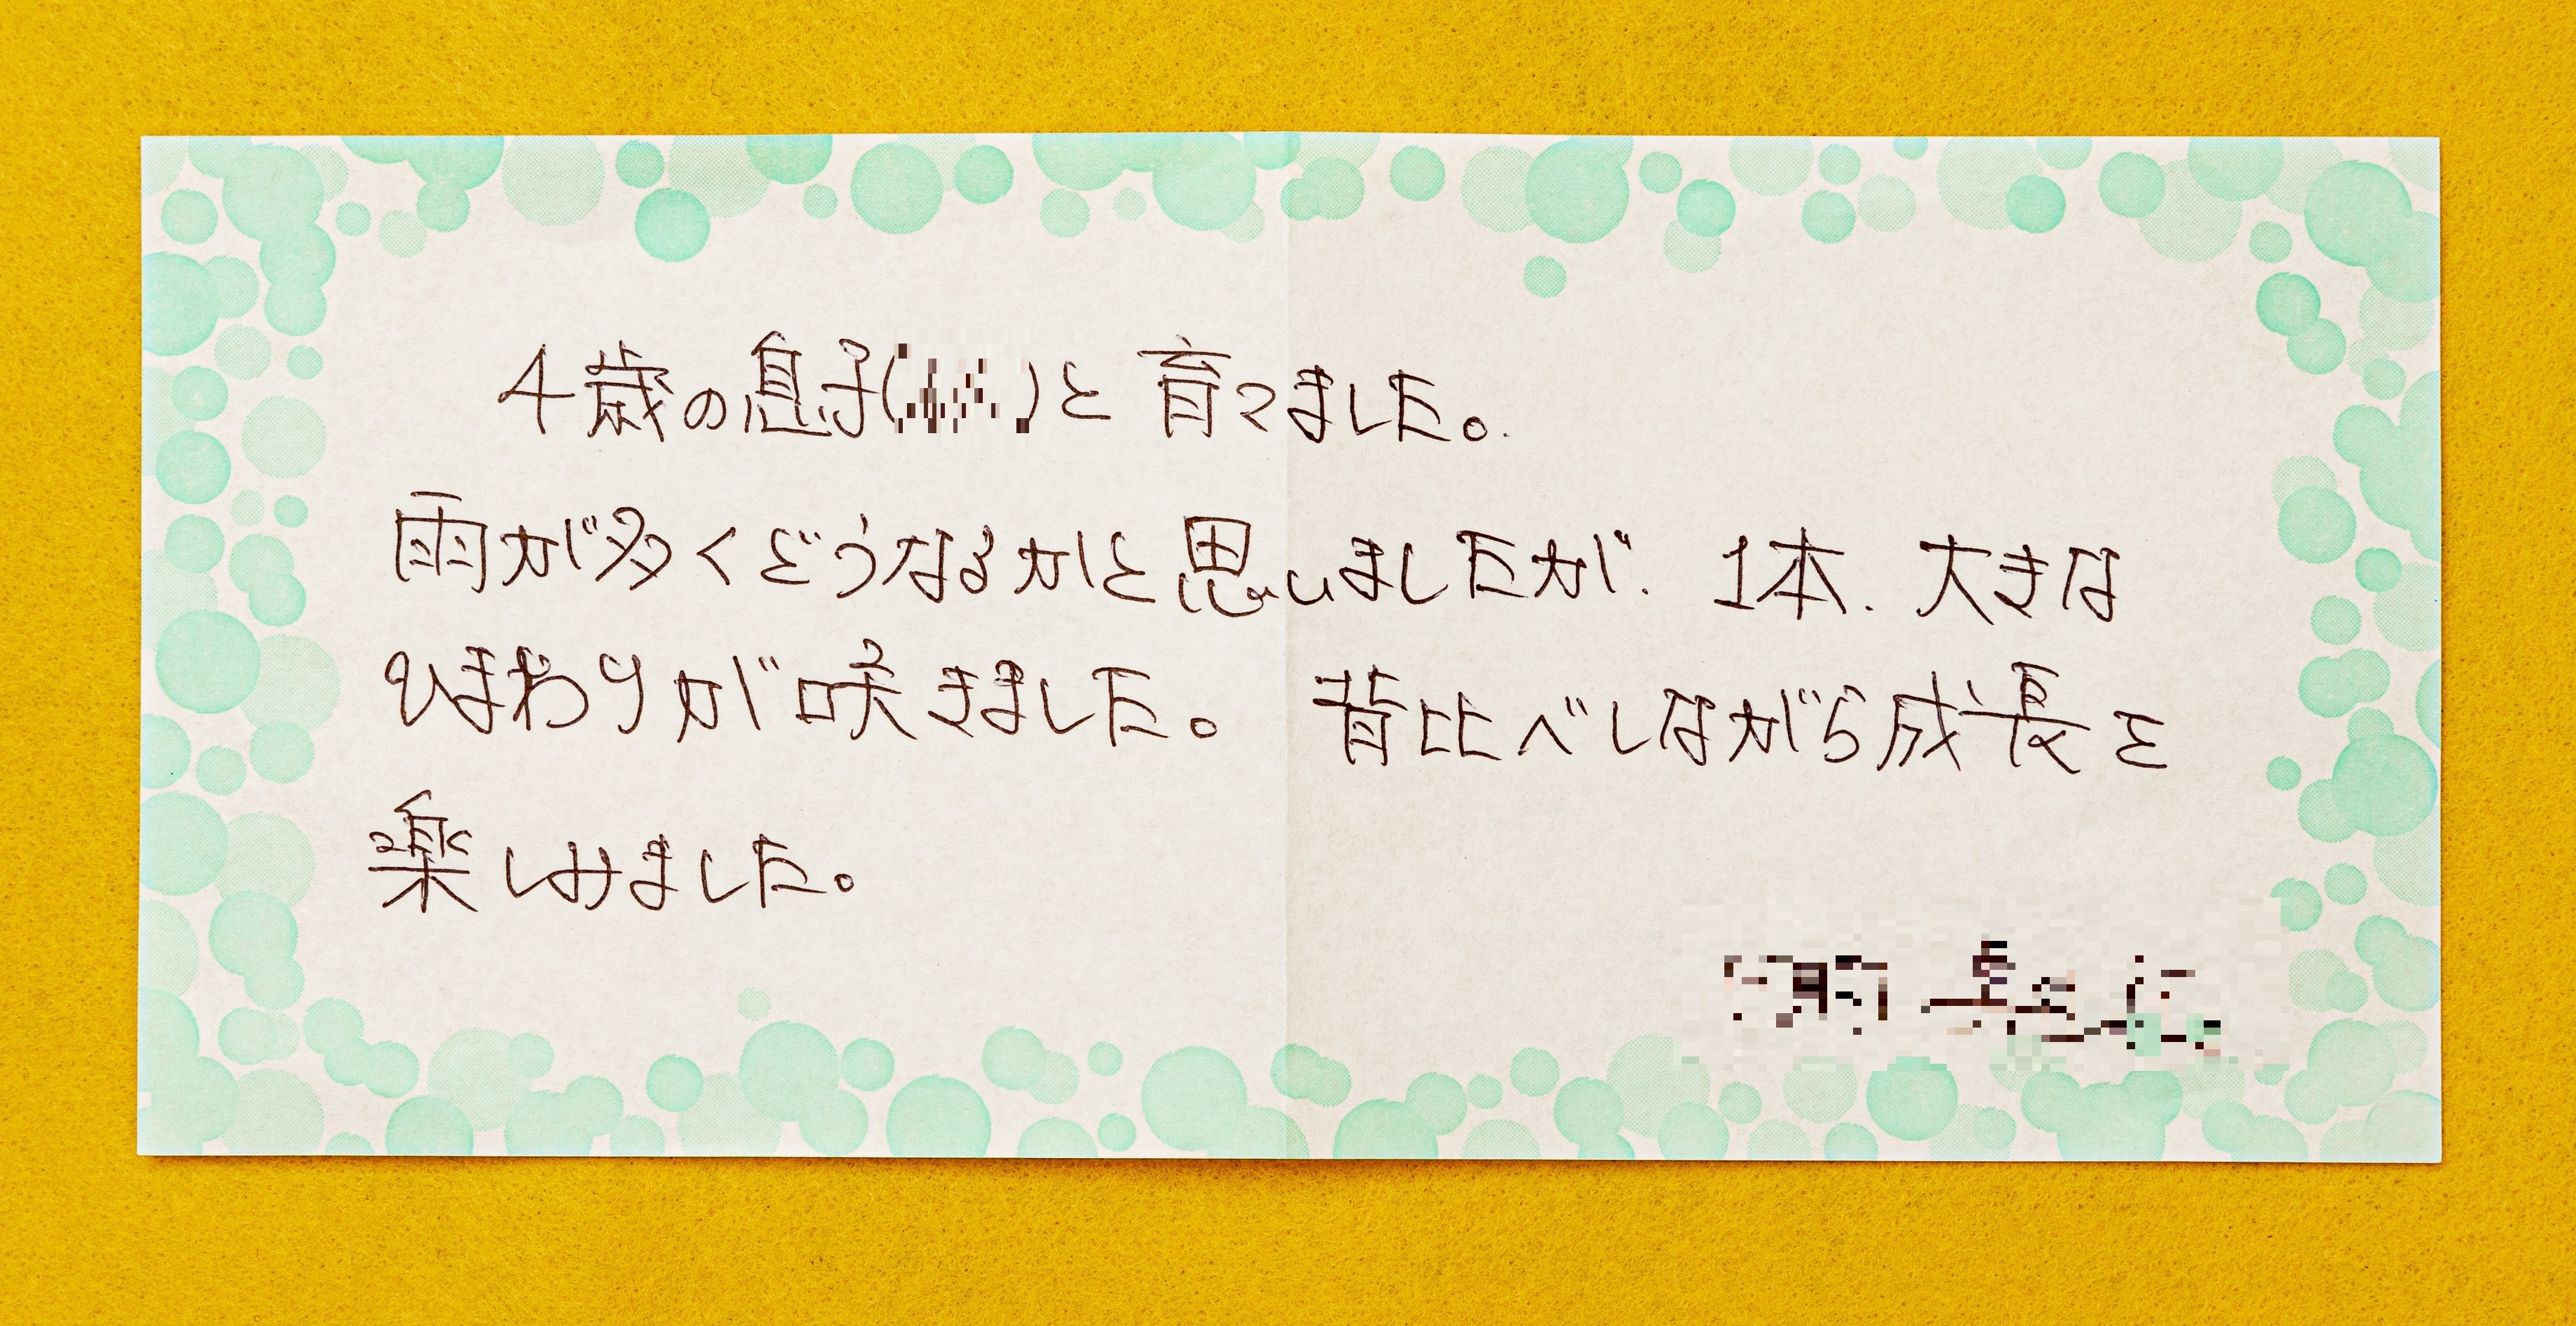 4歳の息子( )と育てました。
雨が多くどうなるかと思いましたが、1本、大きな
ひまわりが咲きました。背比べしながら成長を
楽しみました。